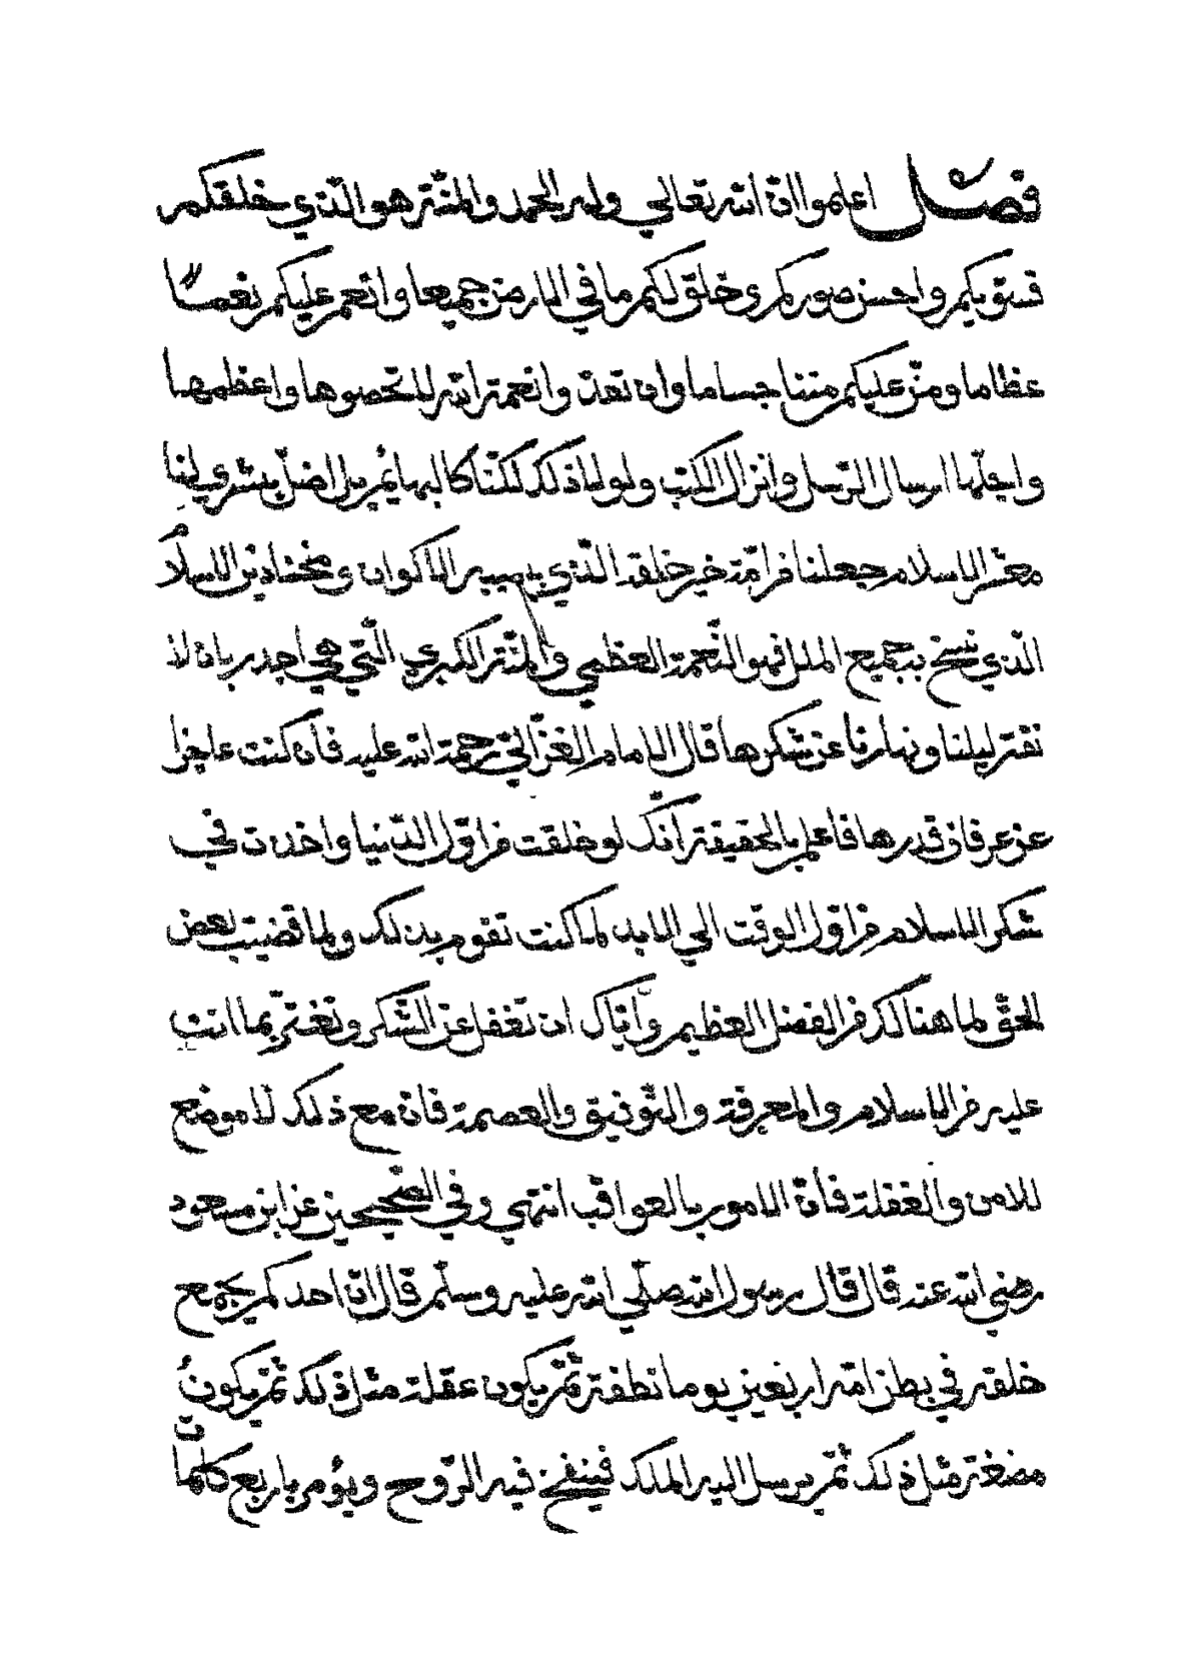 فصل اعلموا ان الله تعالى وله الحمد والمنة هو الذي خلقكم
فسويكم واحسن صوركم وخلق لكم ما في الارض جميعا وانعم عليكم نعما
عظاما ومن عليكم مننا جساما وان تعدوا نعمة الله لا تحصوها واعظمها
واجلها ارسال الرسل وانزال الكتب ولولا ذلك لكنا كالبهايم بل اضل بشرى لنا
معشر الاسلام جعلنا من امة خير خلقه الذي به الاكوان و دين الاسلام
الذي نسخ به جميع الملل فهو النعمة العظمى والمنة الكبرى التي هي اجدر بان لا
نفتر ليلنا ونهارنا عن شكرها قال الامام الغزالي رحمة الله عليه فان كنت عاجزا
عن عرفان قدرها فاعلم بالحقيقة انك لو خلقت من اول الدنيا واخذت في
شكر الاسلام من اول الوقت الى الابد لما كنت تقوم بذلك ولما قضيت بعض
الحق لما هنالك من الفضل العظيم واياك ان تغفل عن الشكر وتغتر بما انت
عليه من الاسلام والمعرفة والتوفيق والعصمة فان مع ذلك لا موضع
للامن والغفلة فان الامور بالعواقب انتهى وفي الصحيحين عن ابن مسعود
رضي الله عنه قال قال رسول الله صلى الله عليه وسلم قال ان احدكم يجمع
خلقه في بطن امه اربعين يوما نطفة ثم يكون علقة مثل ذلك ثم يكون
مضغة مثل ذلك ثم يرسل اليه الملك فينفخ فيه الروح ويؤمر باربع كلمات